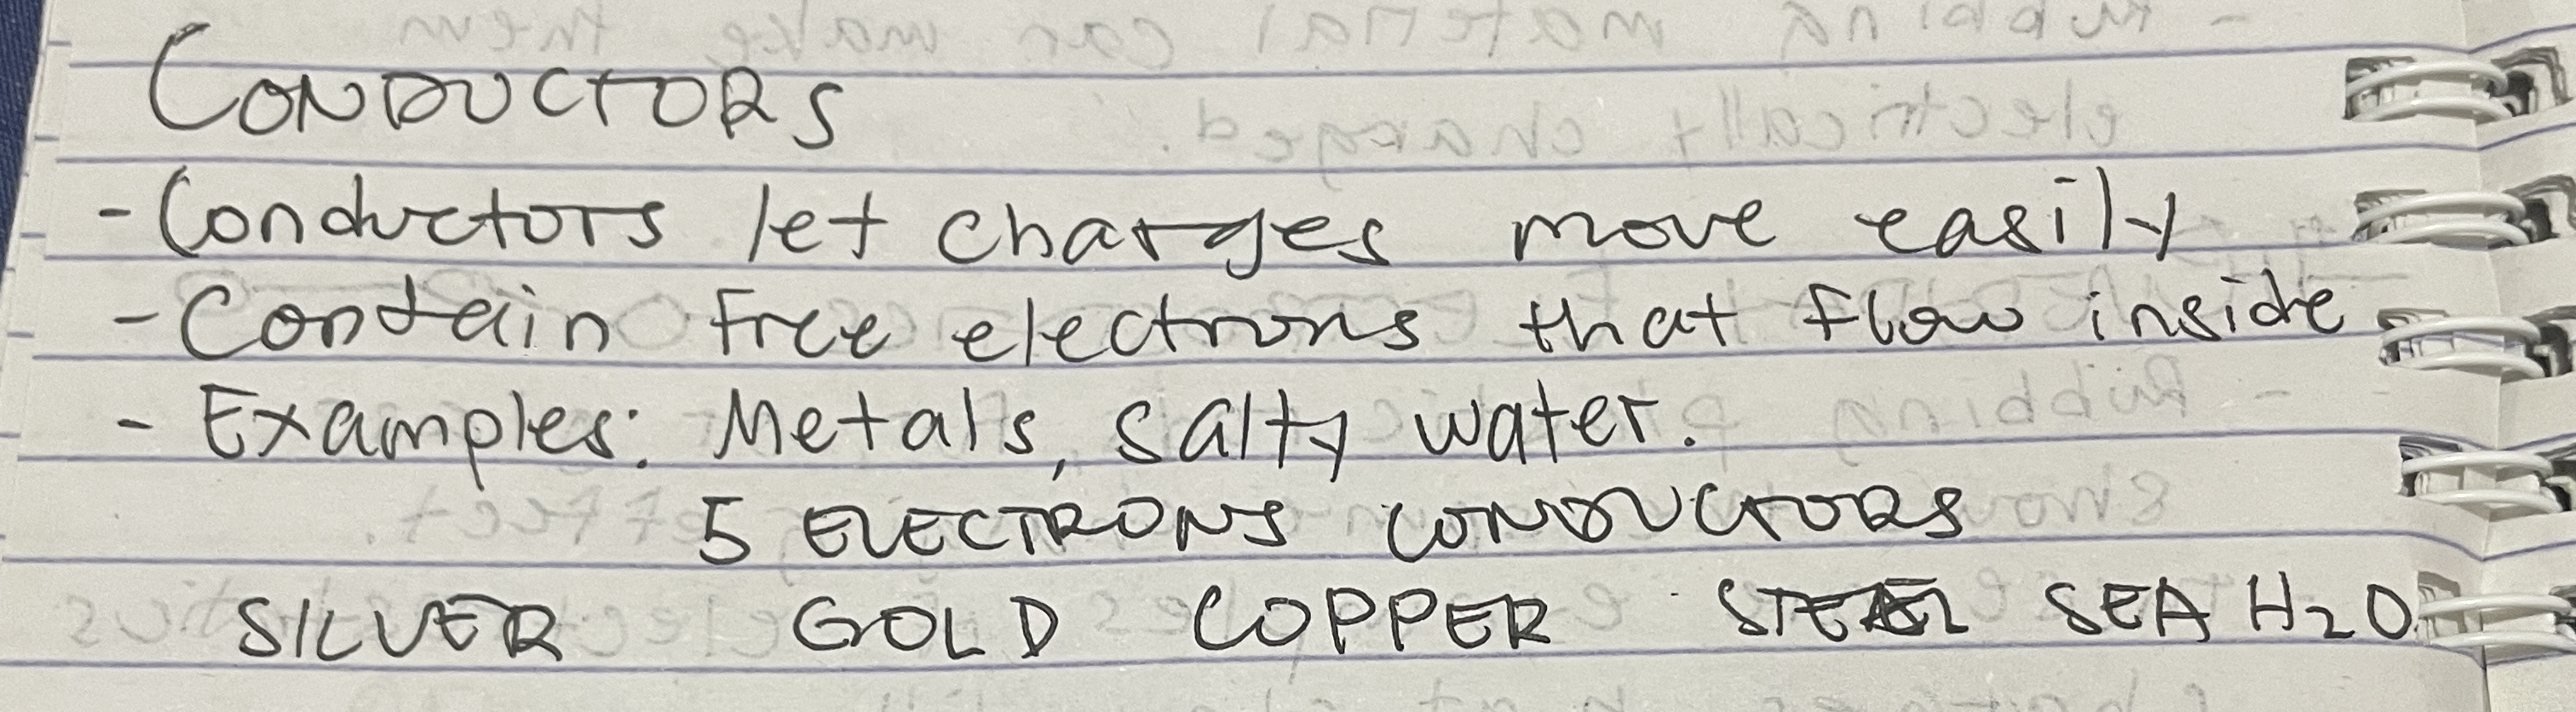 CONDUCTORS
- Conductors let charges move easily
- Contain free electrons that flow inside
- Examples: Metals, salty water.
5 ELECTRONS CONDUCTORS
SILVER GOLD COPPER STEEL SEA H₂O